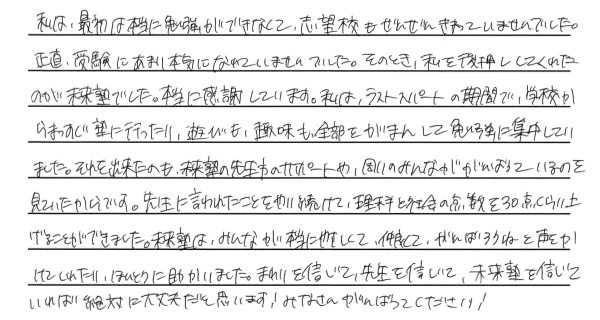 私は、最初は本当に勉強ができなくて、志望校もぜんぜんきまっていませんでした。
正直、受験にあまり本気になれていませんでした。そのとき、私を後押ししてくれた
のが未来塾でした。本当に感謝しています。私は、ラストスパートの期間で、学校か
らまっすぐ塾に行ったり、遊びも、趣味も全部をがまんして勉強に集中してい
ました。それを出来たのも、未来塾の先生方のサポートや、周りのみんながかんばっているのを
見ていたからです。先生に言われたことをやり続けて、理科と社会の点数を30点くらい上
げることができました。未来塾は、みんなが本当に優しくて、仲良くて、がんばろうねと声をか
けてくれたり、ほんとうに助かりました。まわりを信じて、先生を信じて、未来塾を信じて
いれば絶対に大丈夫だと思います!みなさんがんばってください!